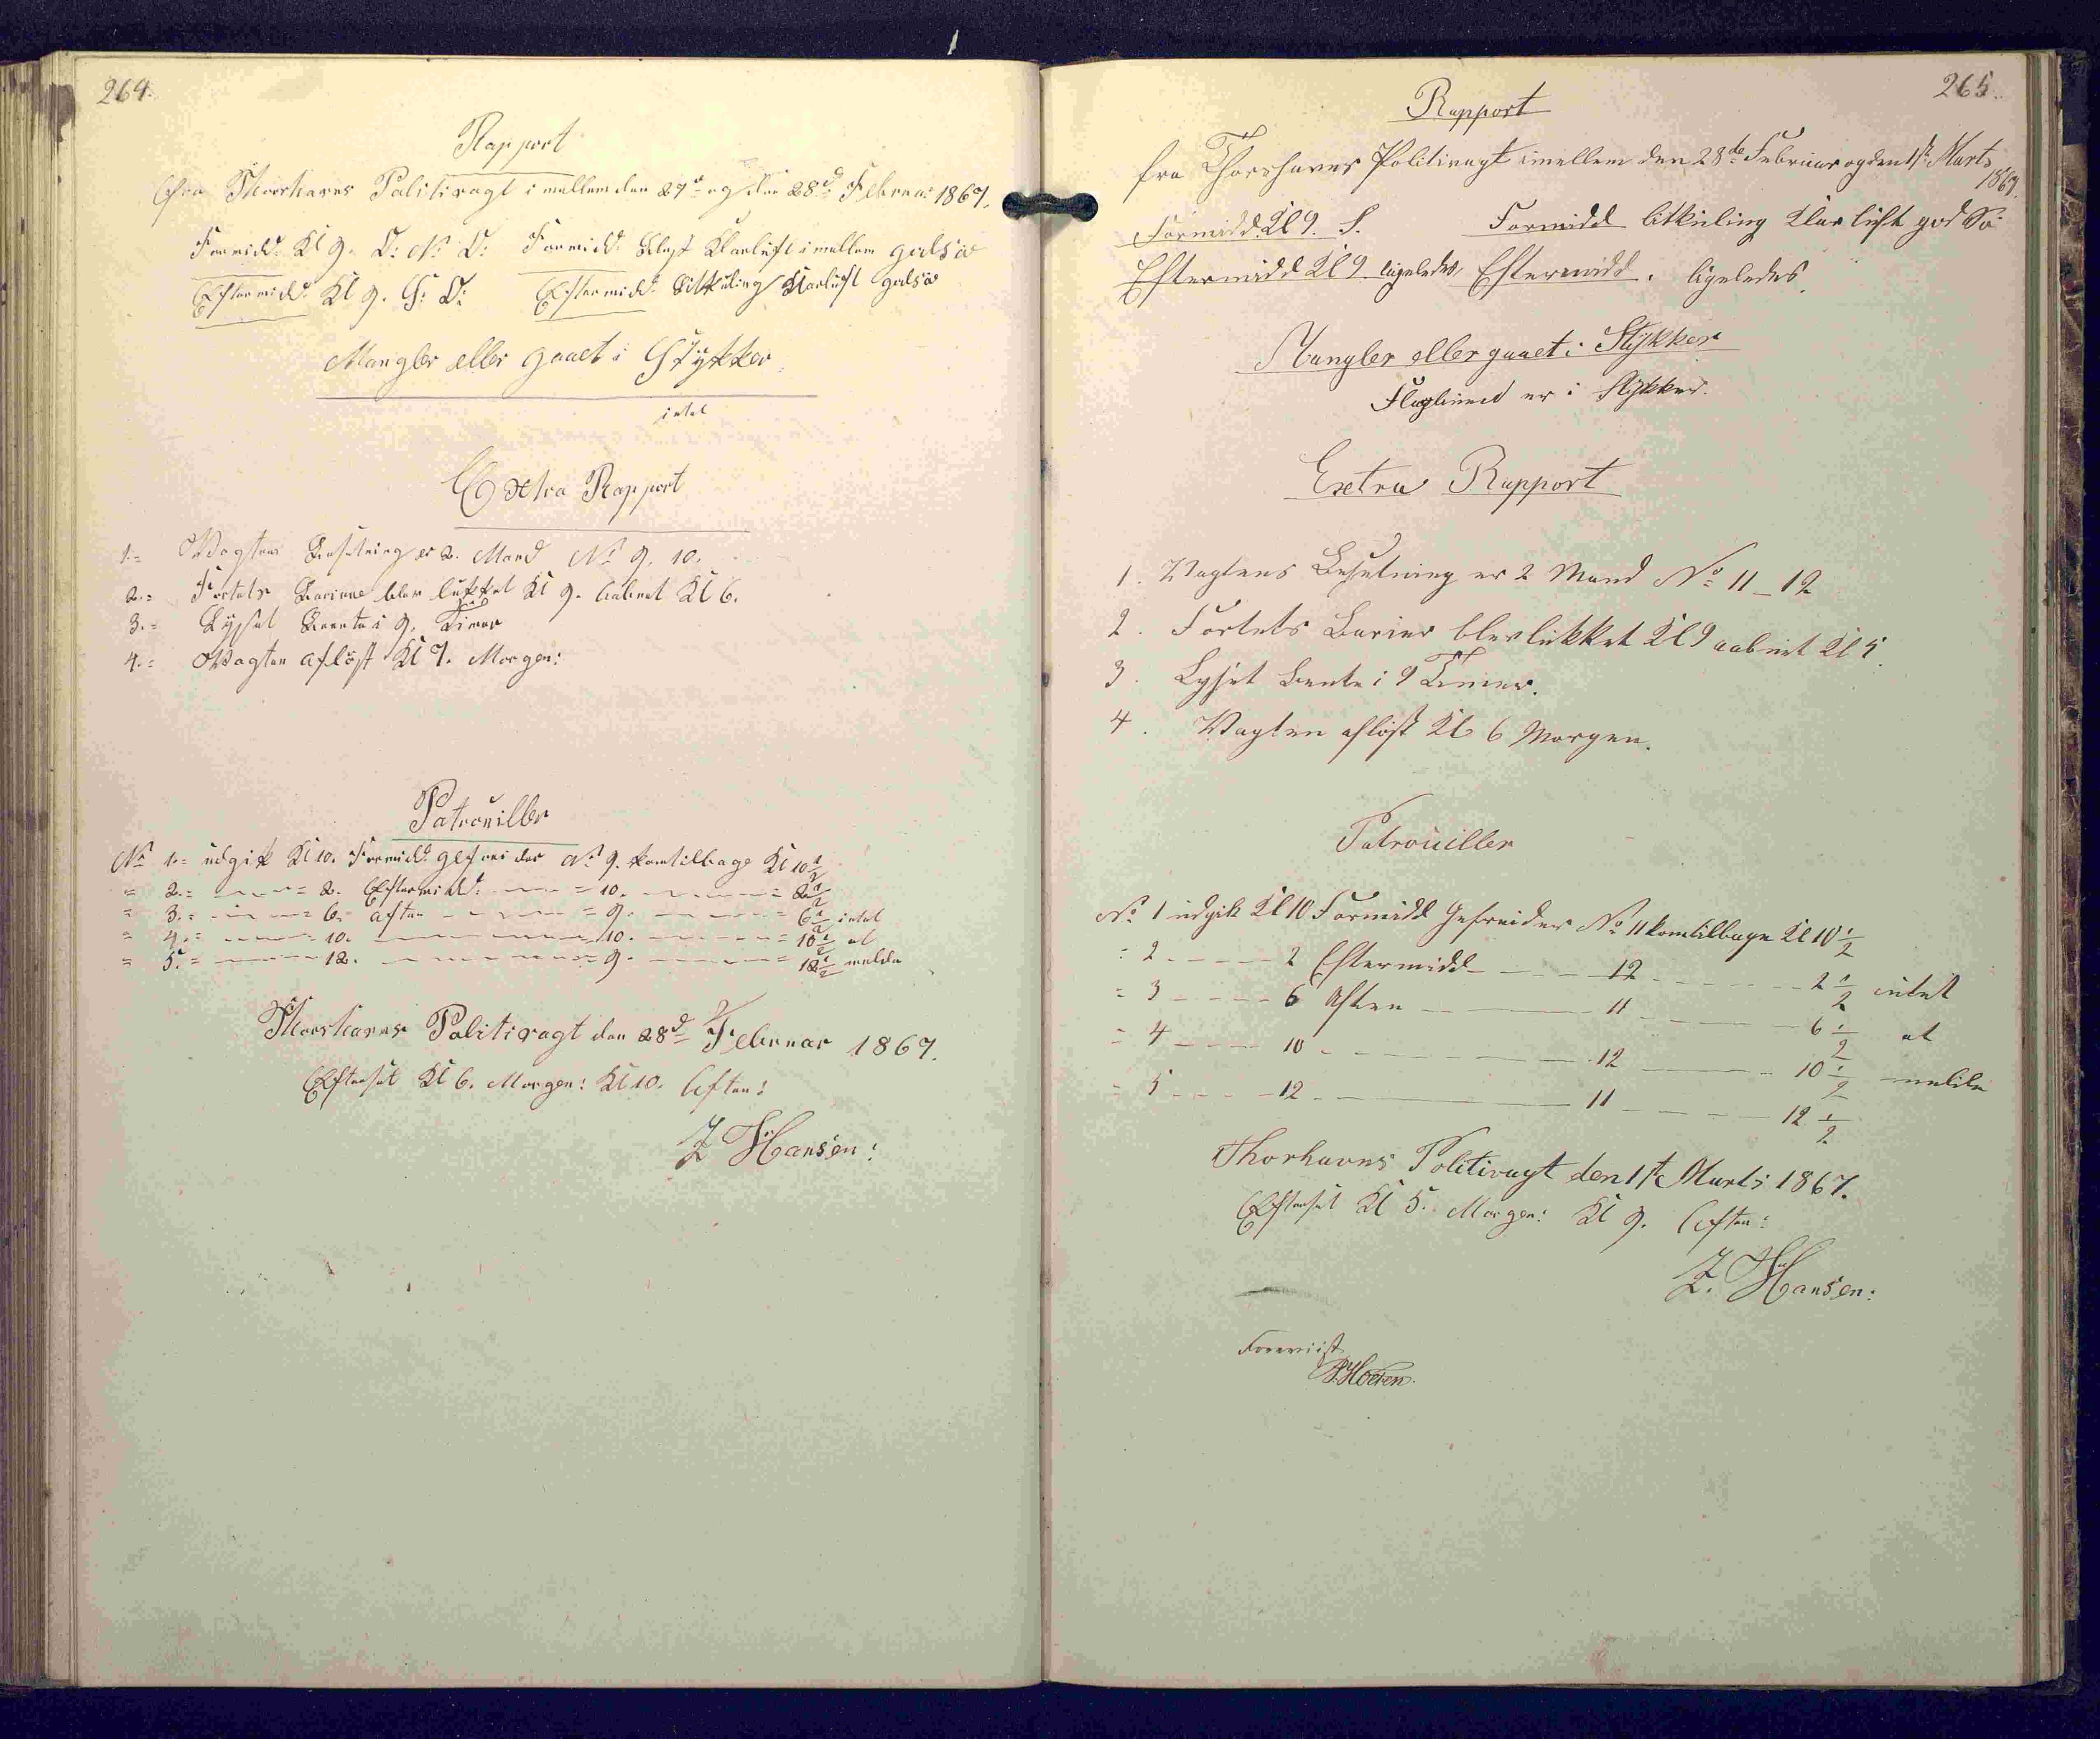 264.
Rapport
Fra Thorshavns Politivagt imellem den 27d og den 28d Februar 1867.
Formidd: Kl 9. O: N: O: Formidd: Klarluft imellem godsiø
Eftermidd: Kl 9. S: O: Eftermidd: Litkuling Klarluft godsiø
Mangler eller gaaet i Stykker
intet
Extra Rapport
1.= Vagtens Besetning er 2. Mand No 9. 10.
2.= Fortets Bariere blev lukket Kl 9. aabnet Kl 6.
3.= Lyset Brente i 9. Timer
4.= Vagten afløst Kl 7. Morgen:
Patrouiller
No 1.= udgik Kl 10. Formidd: Gefreider No 9. kom tilbage Kl 10 1/2
= 2.= = 2. Eftermidd: = 10. = 2 1/2
= 3.= = 6. Aften = 9. = 6 1/2 intet
= 4.= = 10. = 10. = 10 1/2 at
= 5.= = 12. = 9. = 12 1/2 melde
Thorshavns Politivagt den 28d Februar 1867.
Efterset Kl 6. Morgen: Kl 10. Aften:
J Hansen:
265.
Rapport
fra Thorshavns Politivagt imellem den 28de Februar og den 1ste Marts
1867.
Formidd. Kl 9. S. Formidd litkuling Klar luft god Sö
Eftermidd Kl 9 ligeledes, Eftermidd. ligeledes.
Mangler eller gaaet i Stykker
Flaglinned er i Stykker.
Extra Rapport
1. Vagtens Besetning er 2 Mand No 11 - 12
2. Fortets Barier blev lukket Kl 9 aabnet Kl 5.
3. Lyset brente i 9 Timer.
4. Vagten aflöst Kl 6 Morgen.
Patrouiller
No 1 udgik Kl 10 Formidd Gefreider No 11 kom tilbage Kl 10 1/2
= 2 - - - - 2 Eftermidd - - - 12 - - - - 2 1/2 intet
= 3 - - - - 6 Aften - - - 11 - - - - 6 1/2 at
= 4 - - - - 10 - - - - 12 - - - - 10 1/2 melde
= 5 - - - - 12 - - - - 11 - - - - 12 1/2
Thorhavns Politivagt den 1ste Marts 1867.
Efterset Kl 5. Morgen: Kl 9. Aften:
J. Hansen:
Foreviist